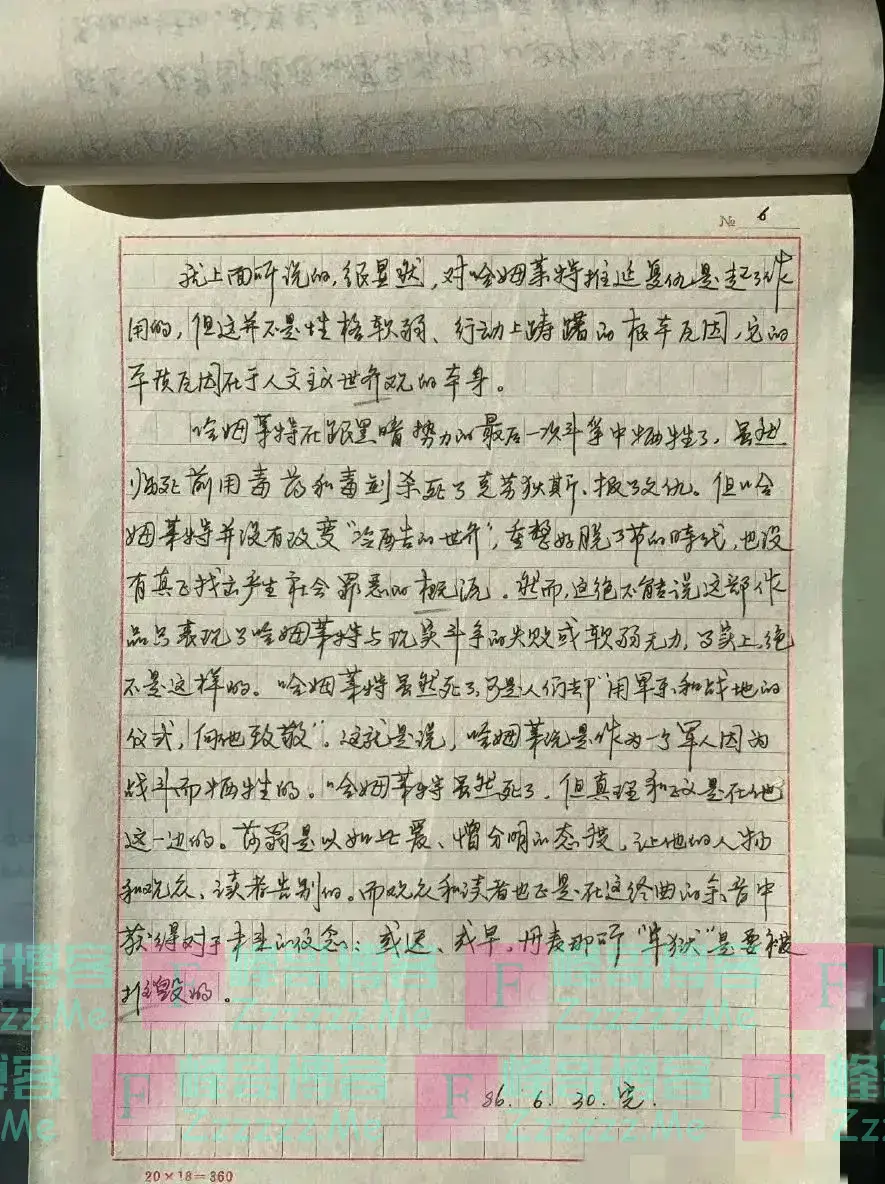 № 6
就上面所说的,很显然,对哈姆莱特推延复仇是起了作
用的,但这并不是性格软弱、行动上踌躇的根本原因,它的
本质原因在于人文主义世界观的本身。
哈姆莱特在跟黑暗势力的最后一次斗争中牺牲了,虽然
临死前用毒药和毒剑杀死了克劳狄斯、报了父仇。但哈
姆莱特并没有改变“冷酷的世界”,重整好脱了节的时代,也没
有真正找出产生社会罪恶的根源。然而,这绝不能说这部作
品只表现了哈姆莱特与现实斗争的失败或软弱无力,事实上,绝
不是这样的。哈姆莱特虽然死了,可是人们却“用军乐和战地的
仪式,向他致敬”。这就是说,哈姆莱特是作为一个军人因为
战斗而牺牲的。哈姆莱特虽然死了,但真理和正义是在他
这一边的。莎翁是以如此爱、憎分明的态度,让他的人物
和观众、读者告别的。而观众和读者也正是在这终曲的余音中
获得对于未来的信念:或迟、或早,丹麦那所“牢狱”是要被
摧毁的。
86.6.30.完.
20×18=360
峰哥博客
Zzzzzz.Me
F
峰哥博客
Zzzzzz.Me
F
峰哥博客
Zzzzzz.Me